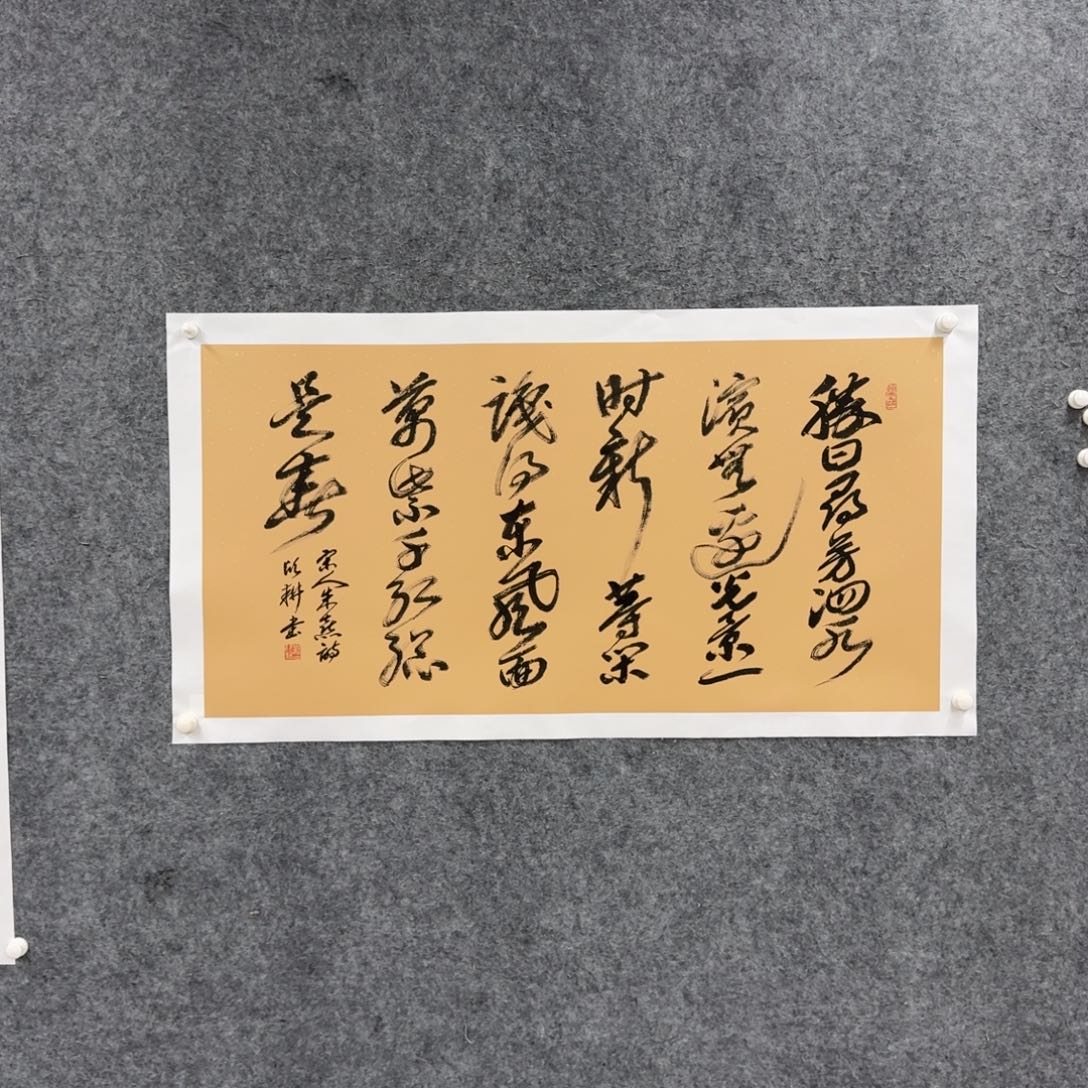 勝日尋芳泗水
濱無邊光景一
时新等闲
識得东風面
萬紫千红總
是春
宋人朱熹詩
耕書